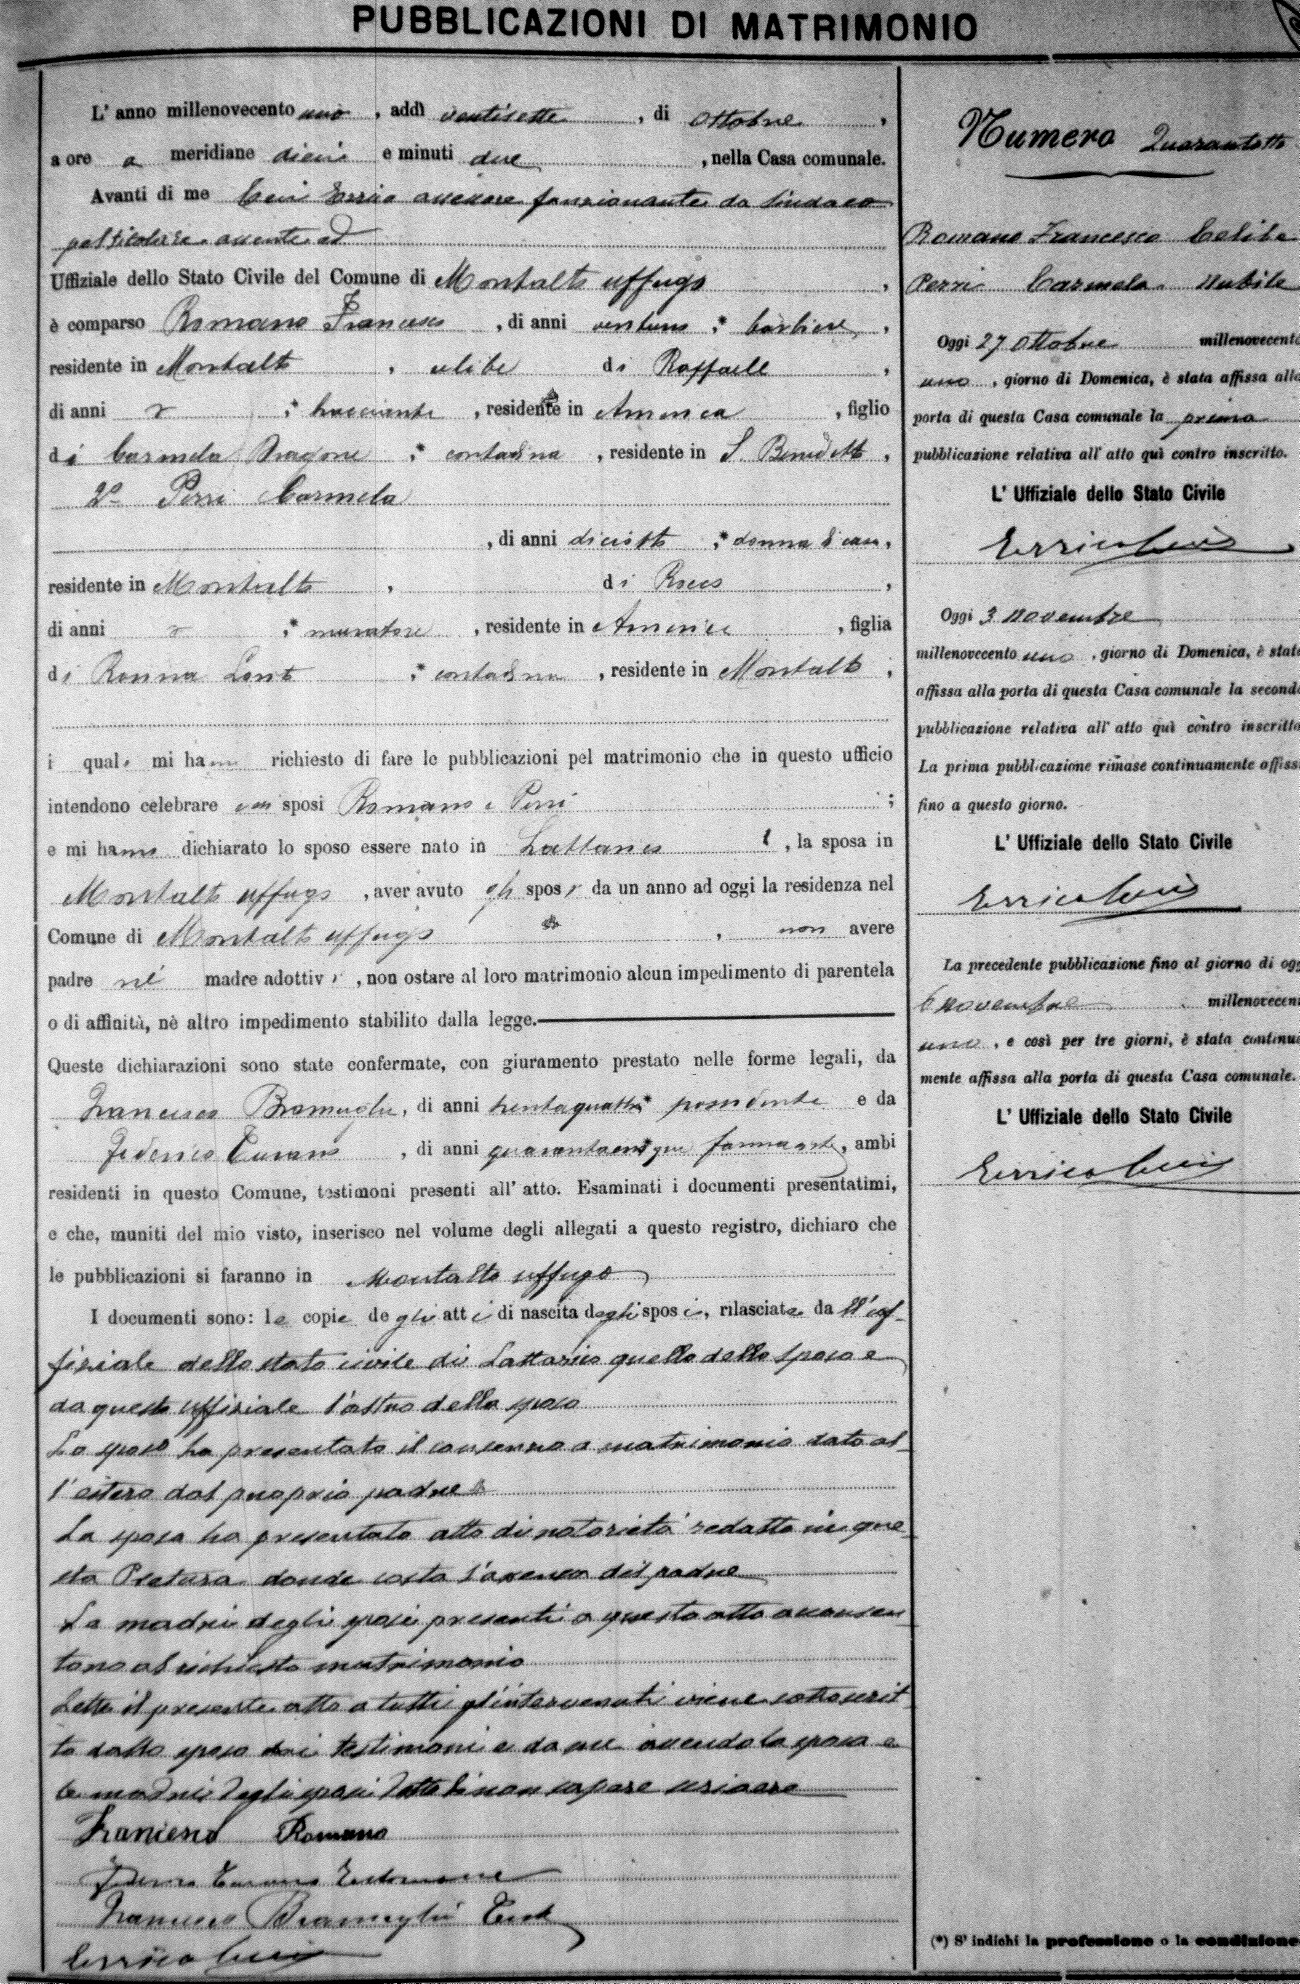 PUBBLICAZIONI DI MATRIMONIO
L' anno millenovecento uno, addì ventisette, di Ottobre,
a ore a meridiane dieci e minuti due, nella Casa comunale.
Avanti di me Ceci Errico assessore funzionante da Sindaco
pel titolare assente ed
Uffiziale dello Stato Civile del Comune di Montalto uffugo,
è comparso Romano Francesco, di anni ventuno ;* barbiere,
residente in Montalto, celibe di Raffaele,
di anni ;* bracciante, residente in America, figlio
di Carmela Dragone ;* contadina, residente in S. Benedetto,
2º Perri Carmela
, di anni diciotto ;* donna di casa,
residente in Montalto, di Rocco,
di anni ;* muratore, residente in America, figlia
di Rosina ;* contadina, residente in Montalto ;
i quali mi hanno richiesto di fare le pubblicazioni pel matrimonio che in questo ufficio
intendono celebrare essi sposi Romano e Perri ;
e mi hanno dichiarato lo sposo essere nato in Lattarico, la sposa in
Montalto uffugo, aver avuto gli sposi da un anno ad oggi la residenza nel
Comune di Montalto uffugo, non avere
padre nè madre adottivi, non ostare al loro matrimonio alcun impedimento di parentela
o di affinità, nè altro impedimento stabilito dalla legge.
Queste dichiarazioni sono state confermate, con giuramento prestato nelle forme legali, da
Francesco Bramuglia, di anni trentaquattro* possidente e da
Federico Turano, di anni quarantacinque* farmacista, ambi
residenti in questo Comune, testimoni presenti all' atto. Esaminati i documenti presentatimi,
e che, muniti del mio visto, inserisco nel volume degli allegati a questo registro, dichiaro che
le pubblicazioni si faranno in Montalto uffugo
I documenti sono: le copie degli atti di nascita degli sposi, rilasciate da ll'uf-
fiziale dello stato civile di Lattarico quello dello sposo e
da questo uffiziale l'altro della sposa
Lo sposo ha presentato il consenso a matrimonio dato al-
l'estero dal proprio padre
La sposa ha presentato atto di notorietà redatto in que
sta Pretura donde costa l'assenza del padre
Le madri degli sposi presenti a questo atto acconsen
tono al richiesto matrimonio
Letto il presente atto a tutti gl'intervenuti viene sottoscrit
to dallo sposo dai testimoni e da me avendo la sposa e
le madri degli sposi detto di non sapere scrivere
Francesco Romano
Federico Turano Testimone
Francesco Bramuglia Test
Errico Ceci
Numero Quarantotto
Romano Francesco Celibe
Perri Carmela Nubile
Oggi 27 Ottobre millenovecento
uno, giorno di Domenica, è stata affissa alla
porta di questa Casa comunale la prima
pubblicazione relativa all' atto quì contro inscritto.
L' Uffiziale dello Stato Civile
Errico Ceci
Oggi 3 novembre
millenovecento uno, giorno di Domenica, è stata
affissa alla porta di questa Casa comunale la seconda
pubblicazione relativa all' atto quì contro inscritto
La prima pubblicazione rimase continuamente affissa
fino a questo giorno.
L' Uffiziale dello Stato Civile
Errico Ceci
La precedente pubblicazione fino al giorno di ogg
6 novembre millenovecen
uno, e così per tre giorni, è stata continua
mente affissa alla porta di questa Casa comunale.
L' Uffiziale dello Stato Civile
Errico Ceci
(*) S' indichi la professione o la condizione